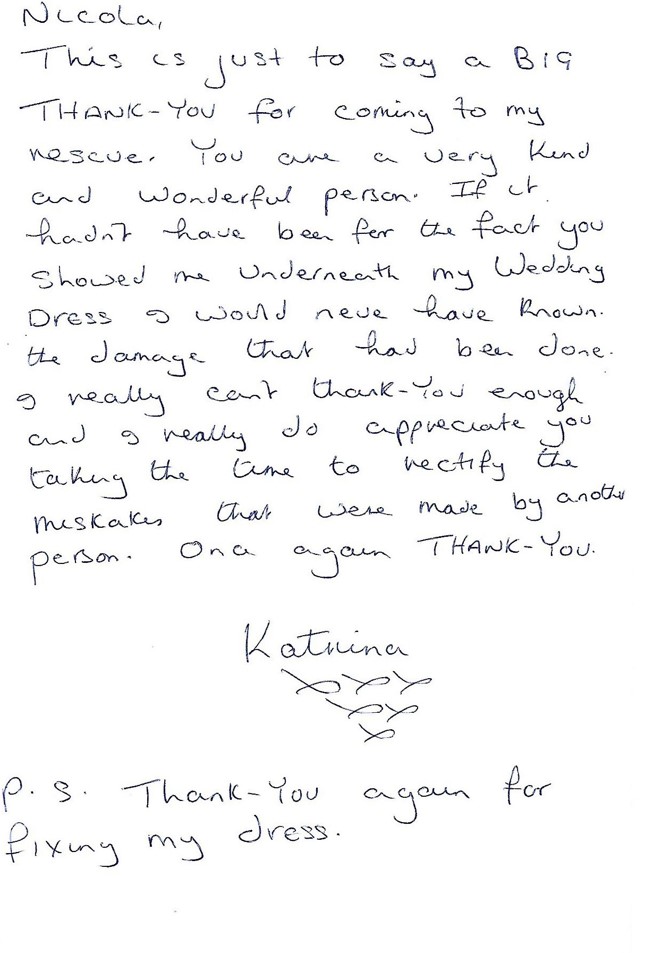 Nicola,
This is just to say a BIG
THANK-YOU for coming to my
rescue. You are a very kind
and wonderful person. If it
hadn't have been for the fact you
showed me underneath my Wedding
Dress I would neve have known.
the damage that had been done.
I really can't thank-You enough
and I really do appreciate you
taking the time to rectify the
miskakes that were made by another
person. Once again THANK-YOU.
Katrina
xxxx
xxx
x
P.S. Thank-You again for
fixing my dress.